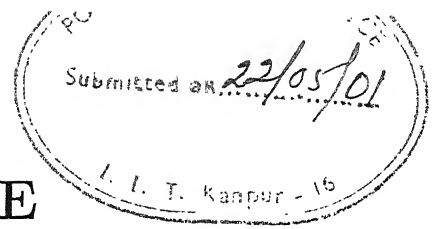 Submitted on 22/05/01
I. I. T. Kanpur - 16
E